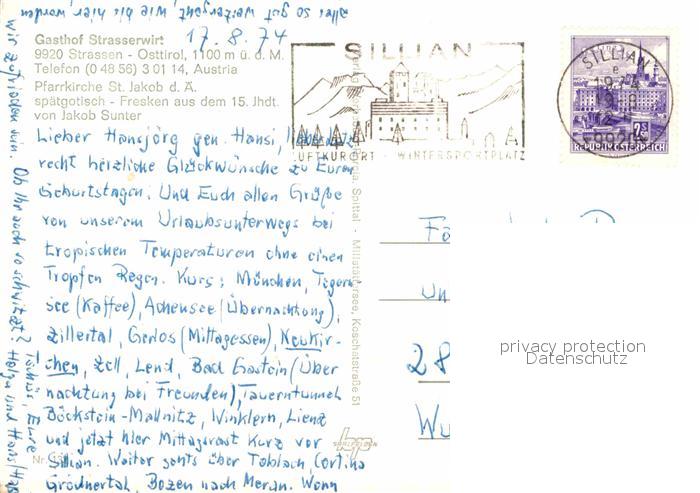 alles so gut weitergeht, wie bis hier,
17.8.74
Gasthof Strasserwirt
9920 Strassen - Osttirol, 1100 m ü. d. M.
Telefon (0 48 56) 3 01 14, Austria
Pfarrkirche St. Jakob d. Ä.
spätgotisch - Fresken aus dem 15. Jhdt.
von Jakob Sunter
Lieber Hansjörg gen. Hansi,
recht herzliche Glückwünsche zu Euren
Geburtstagen. Und Euch allen Grüße
von unserem Urlaubsunterwegs bei
tropischen Temperaturen ohne einen
Tropfen Regen. Kurs: München, Tegern
see (Kaffee), Achensee (Übernachtung),
Zillertal, Gerlos (Mittagessen), Neukir-
chen, Zell, Lend, Bad Gastein (Über
nachtung bei Freunden), Tauerntunnel
Böckstein-Mallnitz, Winklern, Lienz
und jetzt hier Mittagsrast kurz vor
Sillian. Weiter gehts über Toblach, Cortina
Grödnertal, Bozen nach Meran. Wenn
wir zufrieden sein. Ob Ihr auch so schwitzt?
Tschüs, Eure
Helga und Hans
Nr.
Spittal - Millstättersee, Koschatstraße 51
SILLIAN
LUFTKURORT - WINTERSPORTPLATZ
SILLIAN
9920
2S
REPUBLIK ÖSTERREICH
Fa
un
28
Wu
privacy protection
Datenschutz